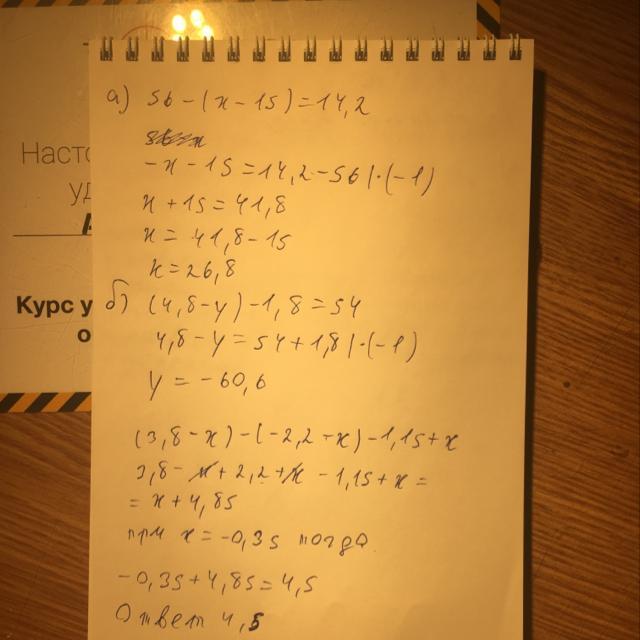 а) 56-(x-15)=14,2
-x-15=14,2-56|·(-1)
x+15=41,8
x=41,8-15
x=26,8
б) (4,8-y)-1,8=54
4,8-y=54+1,8|·(-1)
y=-60,6
(3,8-x)-(-2,2-x)-1,15+x
3,8-x+2,2+x-1,15+x=
=x+4,85
при x=-0,35 тогда
-0,35+4,85=4,5
Ответ 4,5
Наст
уд
Курс у
о